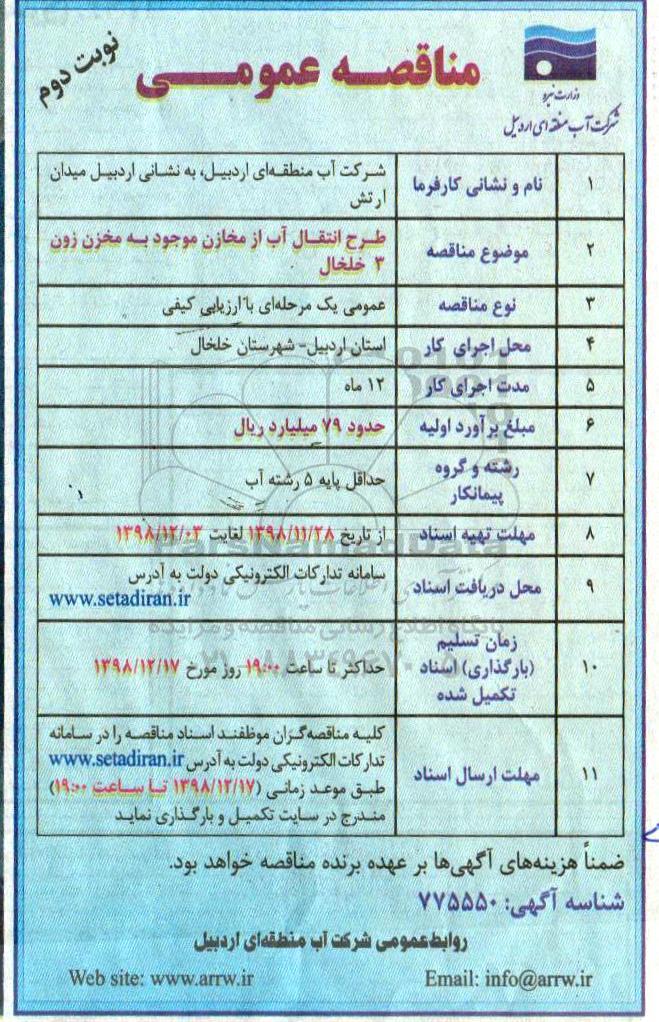 وزارت نیرو
شرکت آب منطقه‌ای اردبیل
مناقصه عمومی
نوبت دوم
۱ نام و نشانی کارفرما شرکت آب منطقه‌ای اردبیل، به نشانی اردبیل میدان
ارتش
۲ موضوع مناقصه طرح انتقال آب از مخازن موجود به مخزن زون
۳ خلخال
۳ نوع مناقصه عمومی یک مرحله‌ای با ارزیابی کیفی
۴ محل اجرای کار استان اردبیل- شهرستان خلخال
۵ مدت اجرای کار ۱۲ ماه
۶ مبلغ برآورد اولیه حدود ۷۹ میلیارد ریال
۷ رشته و گروه
پیمانکار حداقل پایه ۵ رشته آب
۸ مهلت تهیه اسناد از تاریخ ۱۳۹۸/۱۱/۲۸ لغایت ۱۳۹۸/۱۲/۰۳
۹ محل دریافت اسناد سامانه تدارکات الکترونیکی دولت به آدرس
www.setadiran.ir
۱۰ زمان تسلیم
(بارگذاری) اسناد
تکمیل شده حداکثر تا ساعت ۱۹:۰۰ روز مورخ ۱۳۹۸/۱۲/۱۷
۱۱ مهلت ارسال اسناد کلیه مناقصه‌گران موظفند اسناد مناقصه را در سامانه
تدارکات الکترونیکی دولت به آدرس www.setadiran.ir
طبق موعد زمانی (۱۳۹۸/۱۲/۱۷ تا ساعت ۱۹:۰۰)
مندرج در سایت تکمیل و بارگذاری نماید
ضمناً هزینه‌های آگهی‌ها بر عهده برنده مناقصه خواهد بود.
شناسه آگهی: ۷۷۵۵۵۰
روابط‌عمومی شرکت آب منطقه‌ای اردبیل
Web site: www.arrw.ir Email: info@arrw.ir
ParsNamadData
پایگاه اطلاع رسانی مناقصه و مزایده